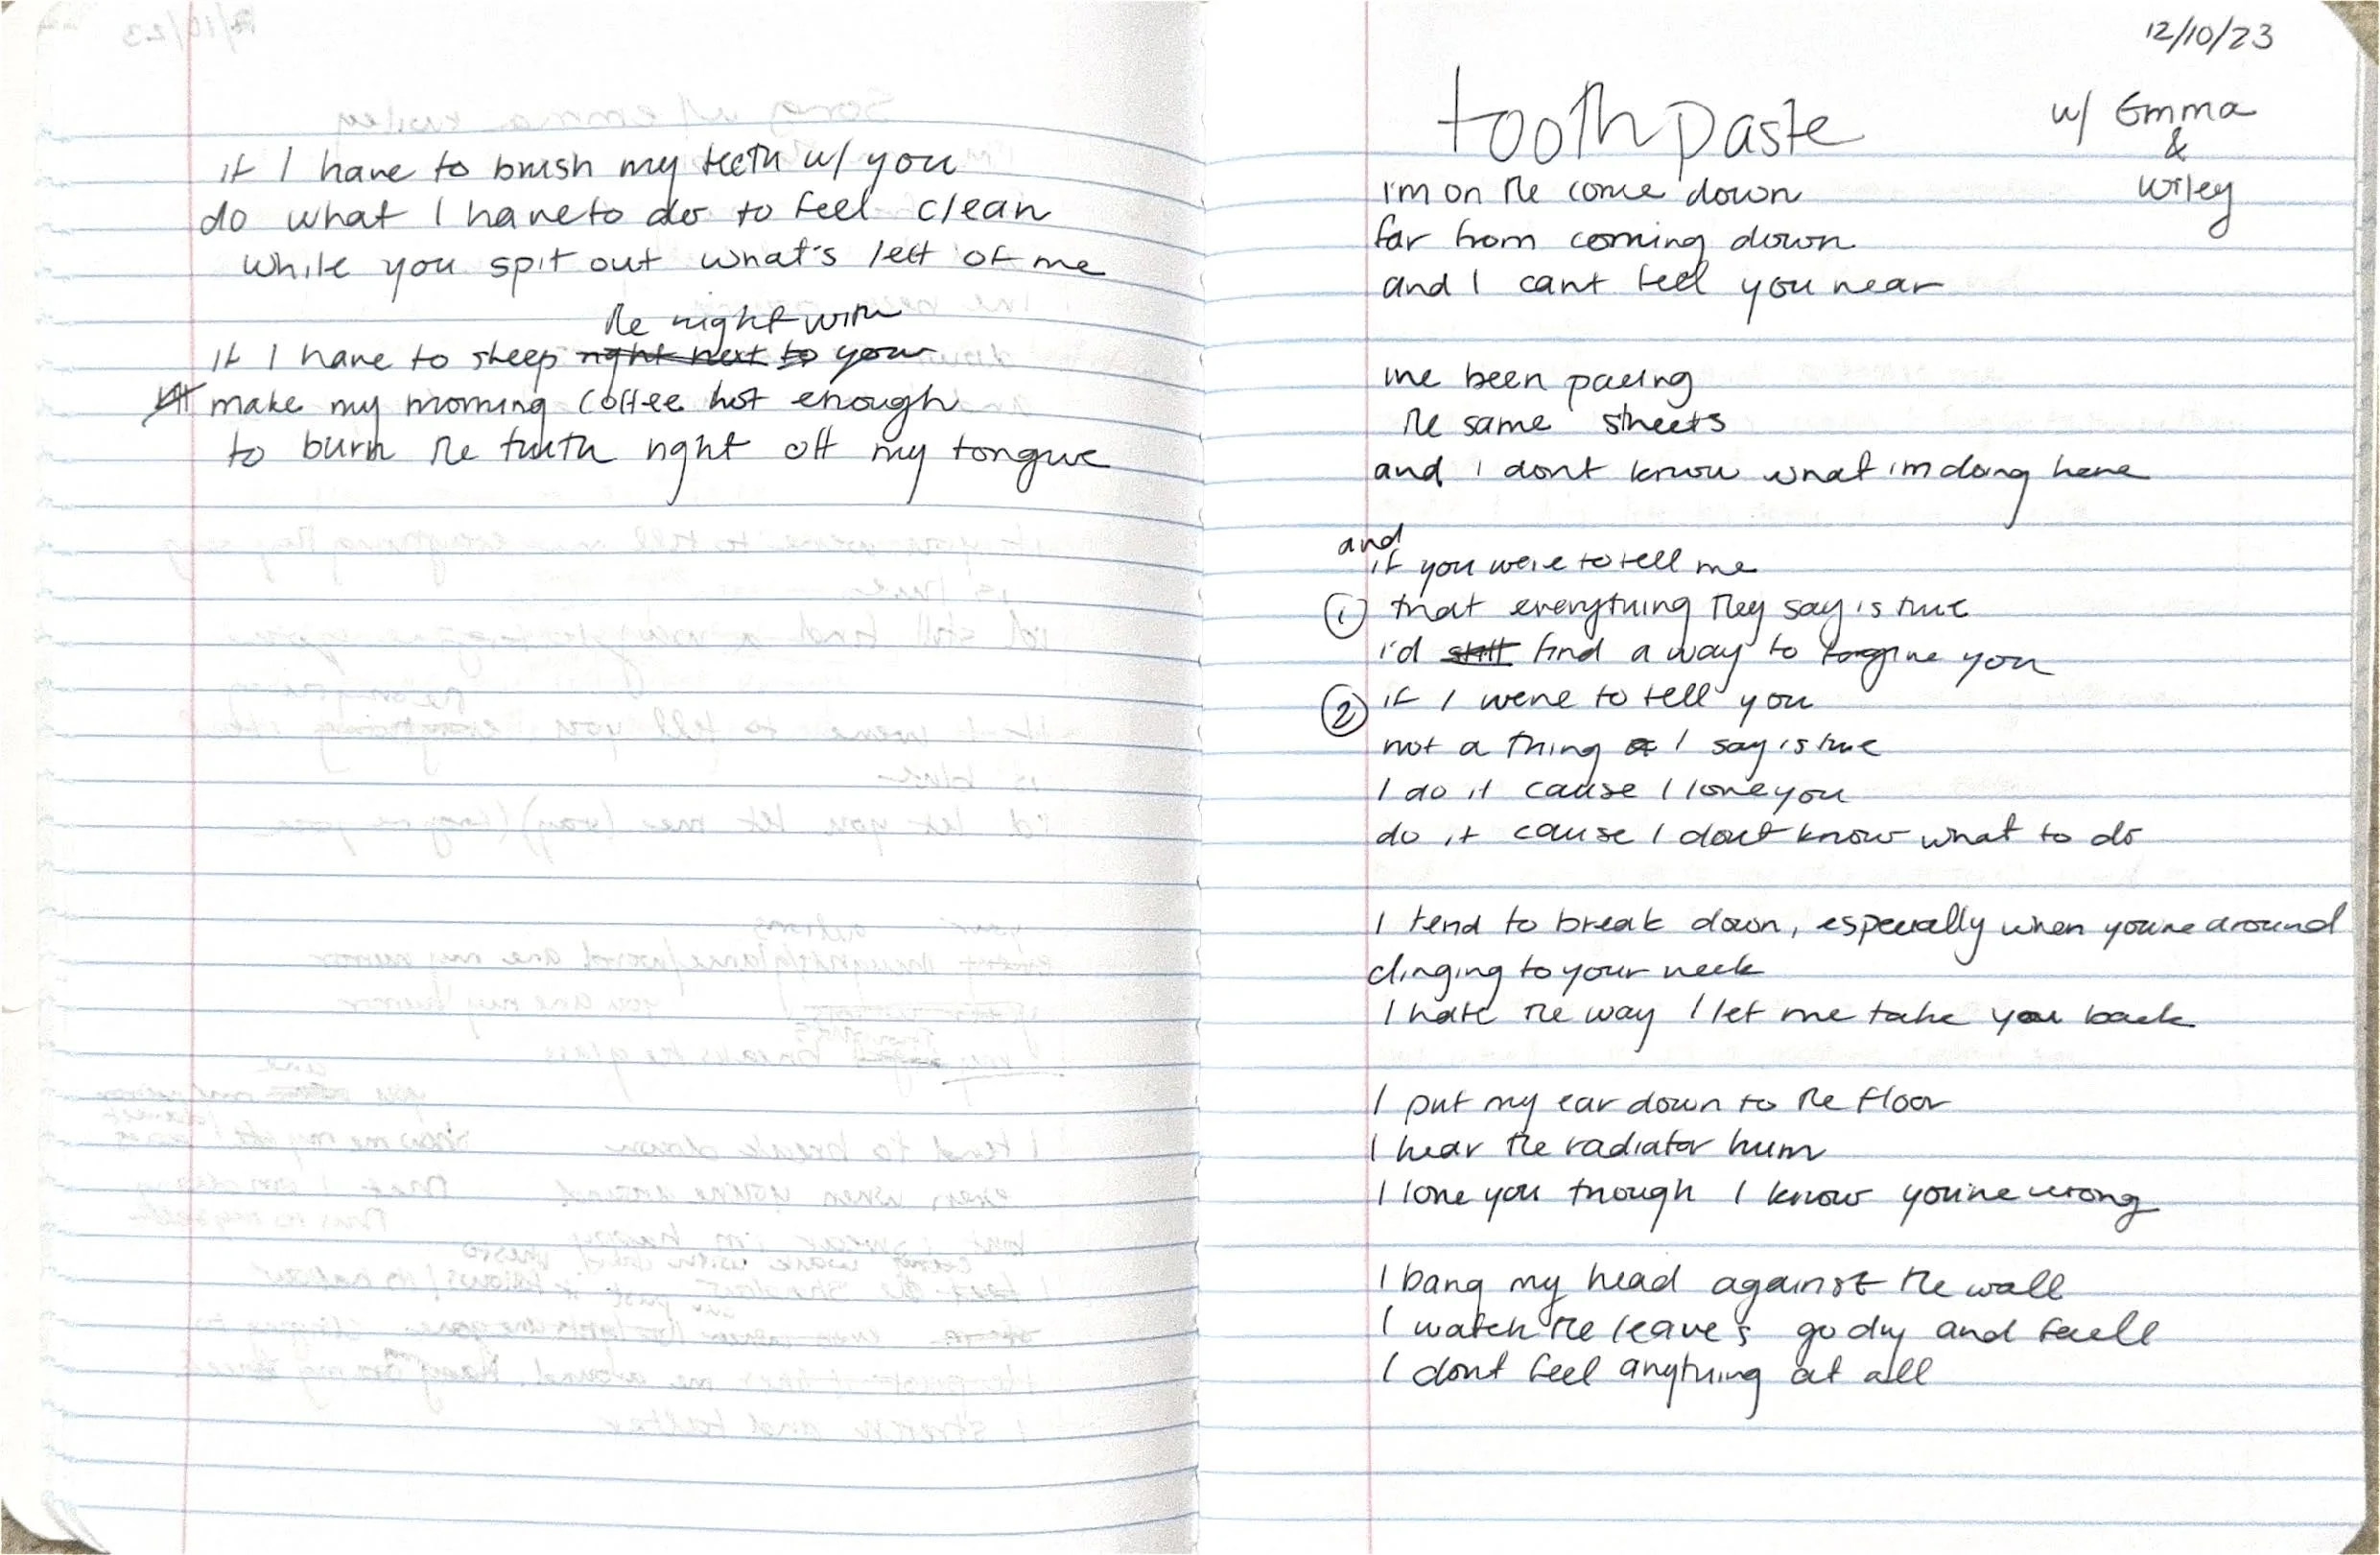 if I have to brush my teeth w/ you
do what I have to do to feel clean
while you spit out what's left of me
the night with
if I have to sleep right next to you
make my morning coffee hot enough
to burn the truth right off my tongue
12/10/23
toothpaste
w/ Emma
&
Wiley
i'm on the come down
far from coming down
and I cant feel you near
ive been pacing
the same streets
and i dont know what im doing here
and
if you were to tell me
① that everything they say is true
i'd still find a way to forgive you
② if I were to tell you
not a thing I say is true
I do it cause I love you
do it cause I dont know what to do
I tend to break down, especially when you're around
clinging to your neck
I hate the way I let me take you back
I put my ear down to the floor
I hear the radiator hum
I love you though I know you're wrong
I bang my head against the wall
I watch the leaves go dry and fall
I dont feel anything at all